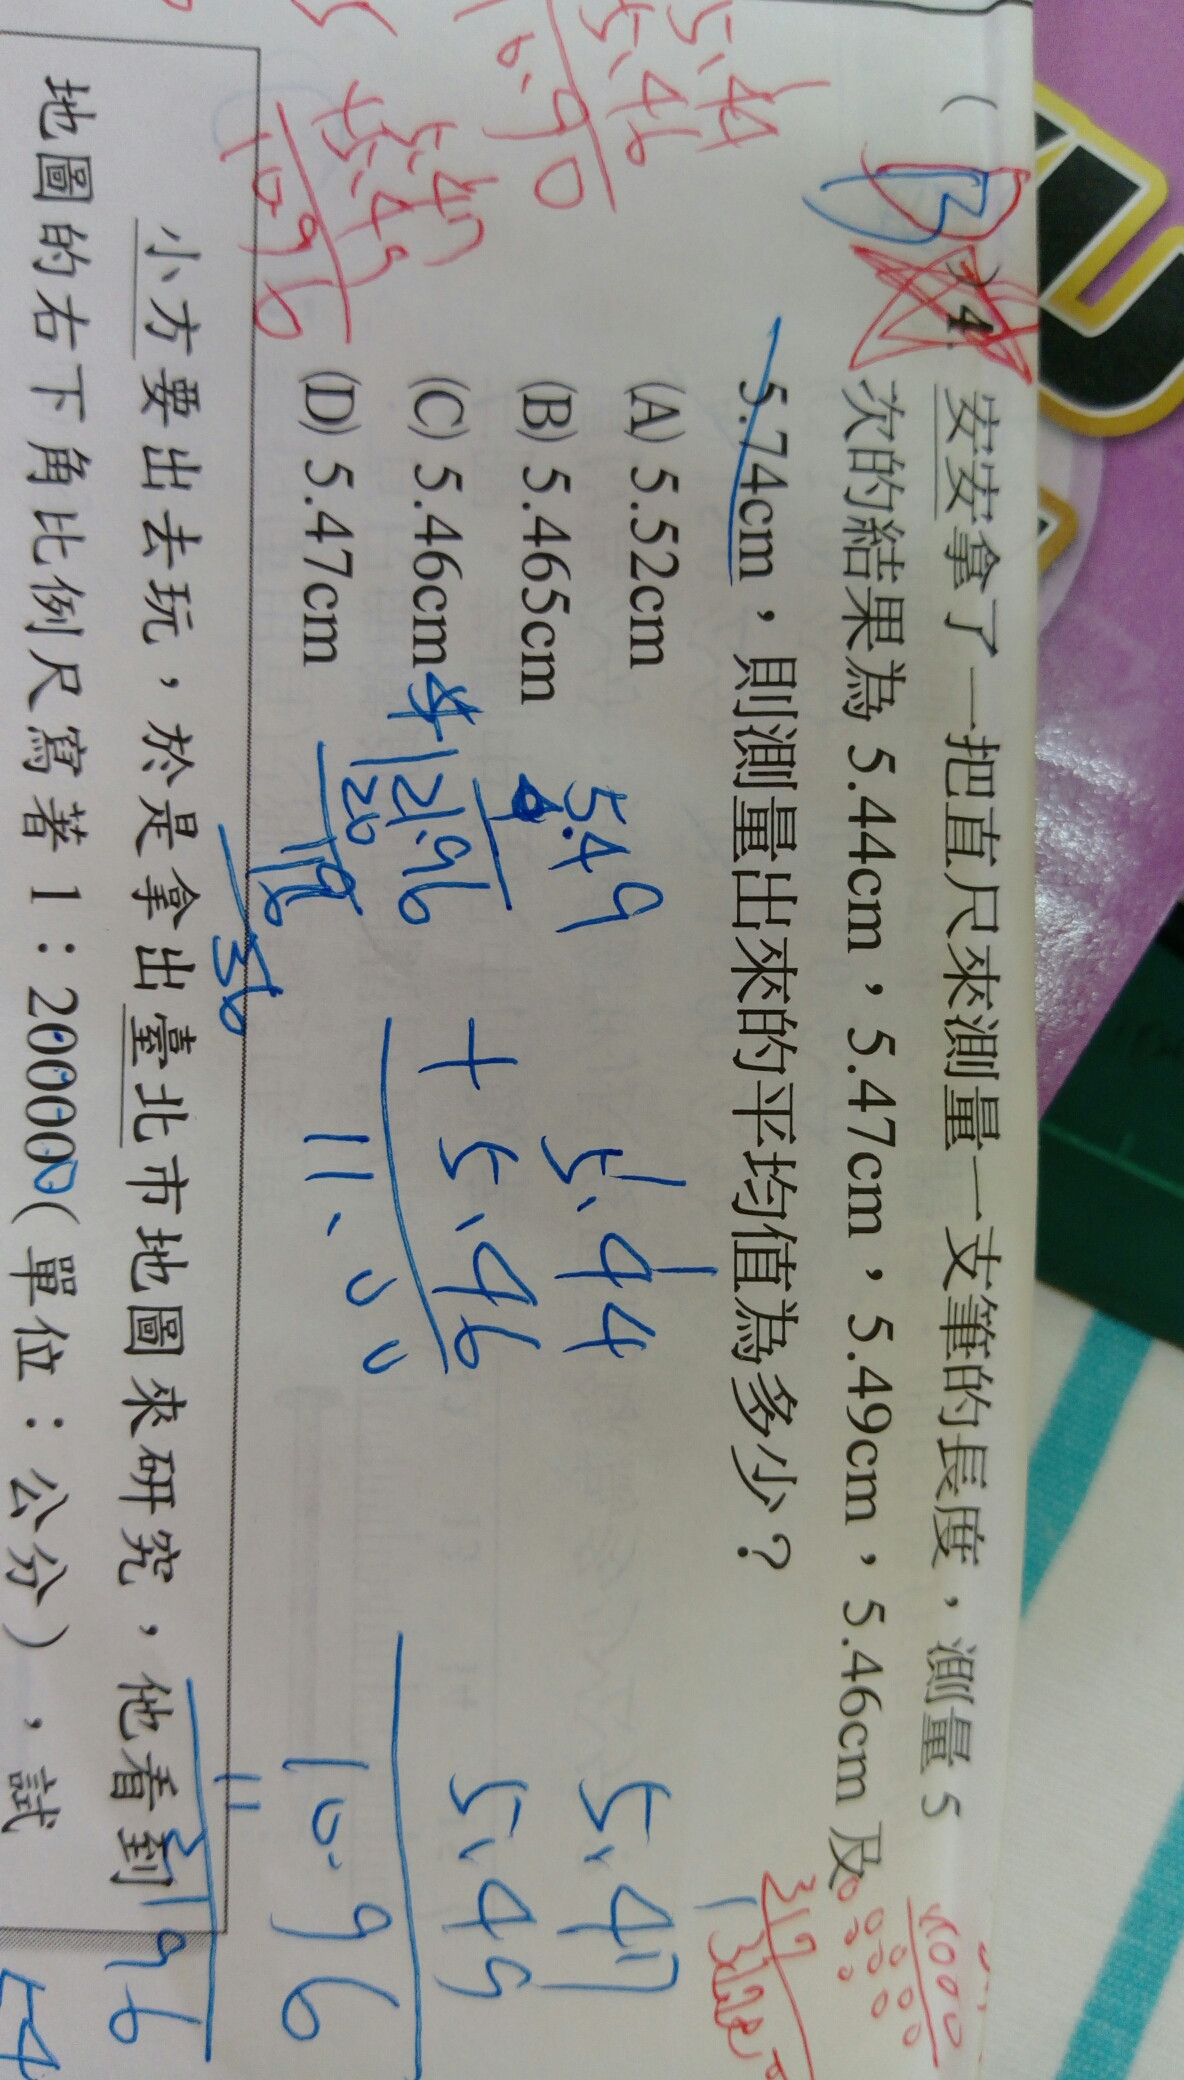 ( B ) 4. 安安拿了一把直尺來測量一支筆的長度，測量 5
次的結果為 5.44cm，5.47cm，5.49cm，5.46cm 及
5.74cm，則測量出來的平均值為多少？
(A) 5.52cm
(B) 5.465cm
(C) 5.46cm
(D) 5.47cm
5.44
5.46
10.90
5.47
5.49
10.96
5.49
4
21.96
20
19
16
36
5.44
+ 5.46
11.00
5.47
5.49
10.96
11
21.96
小方要出去玩，於是拿出臺北市地圖來研究，他看到
地圖的右下角比例尺寫著 1：200000(單位：公分)，試